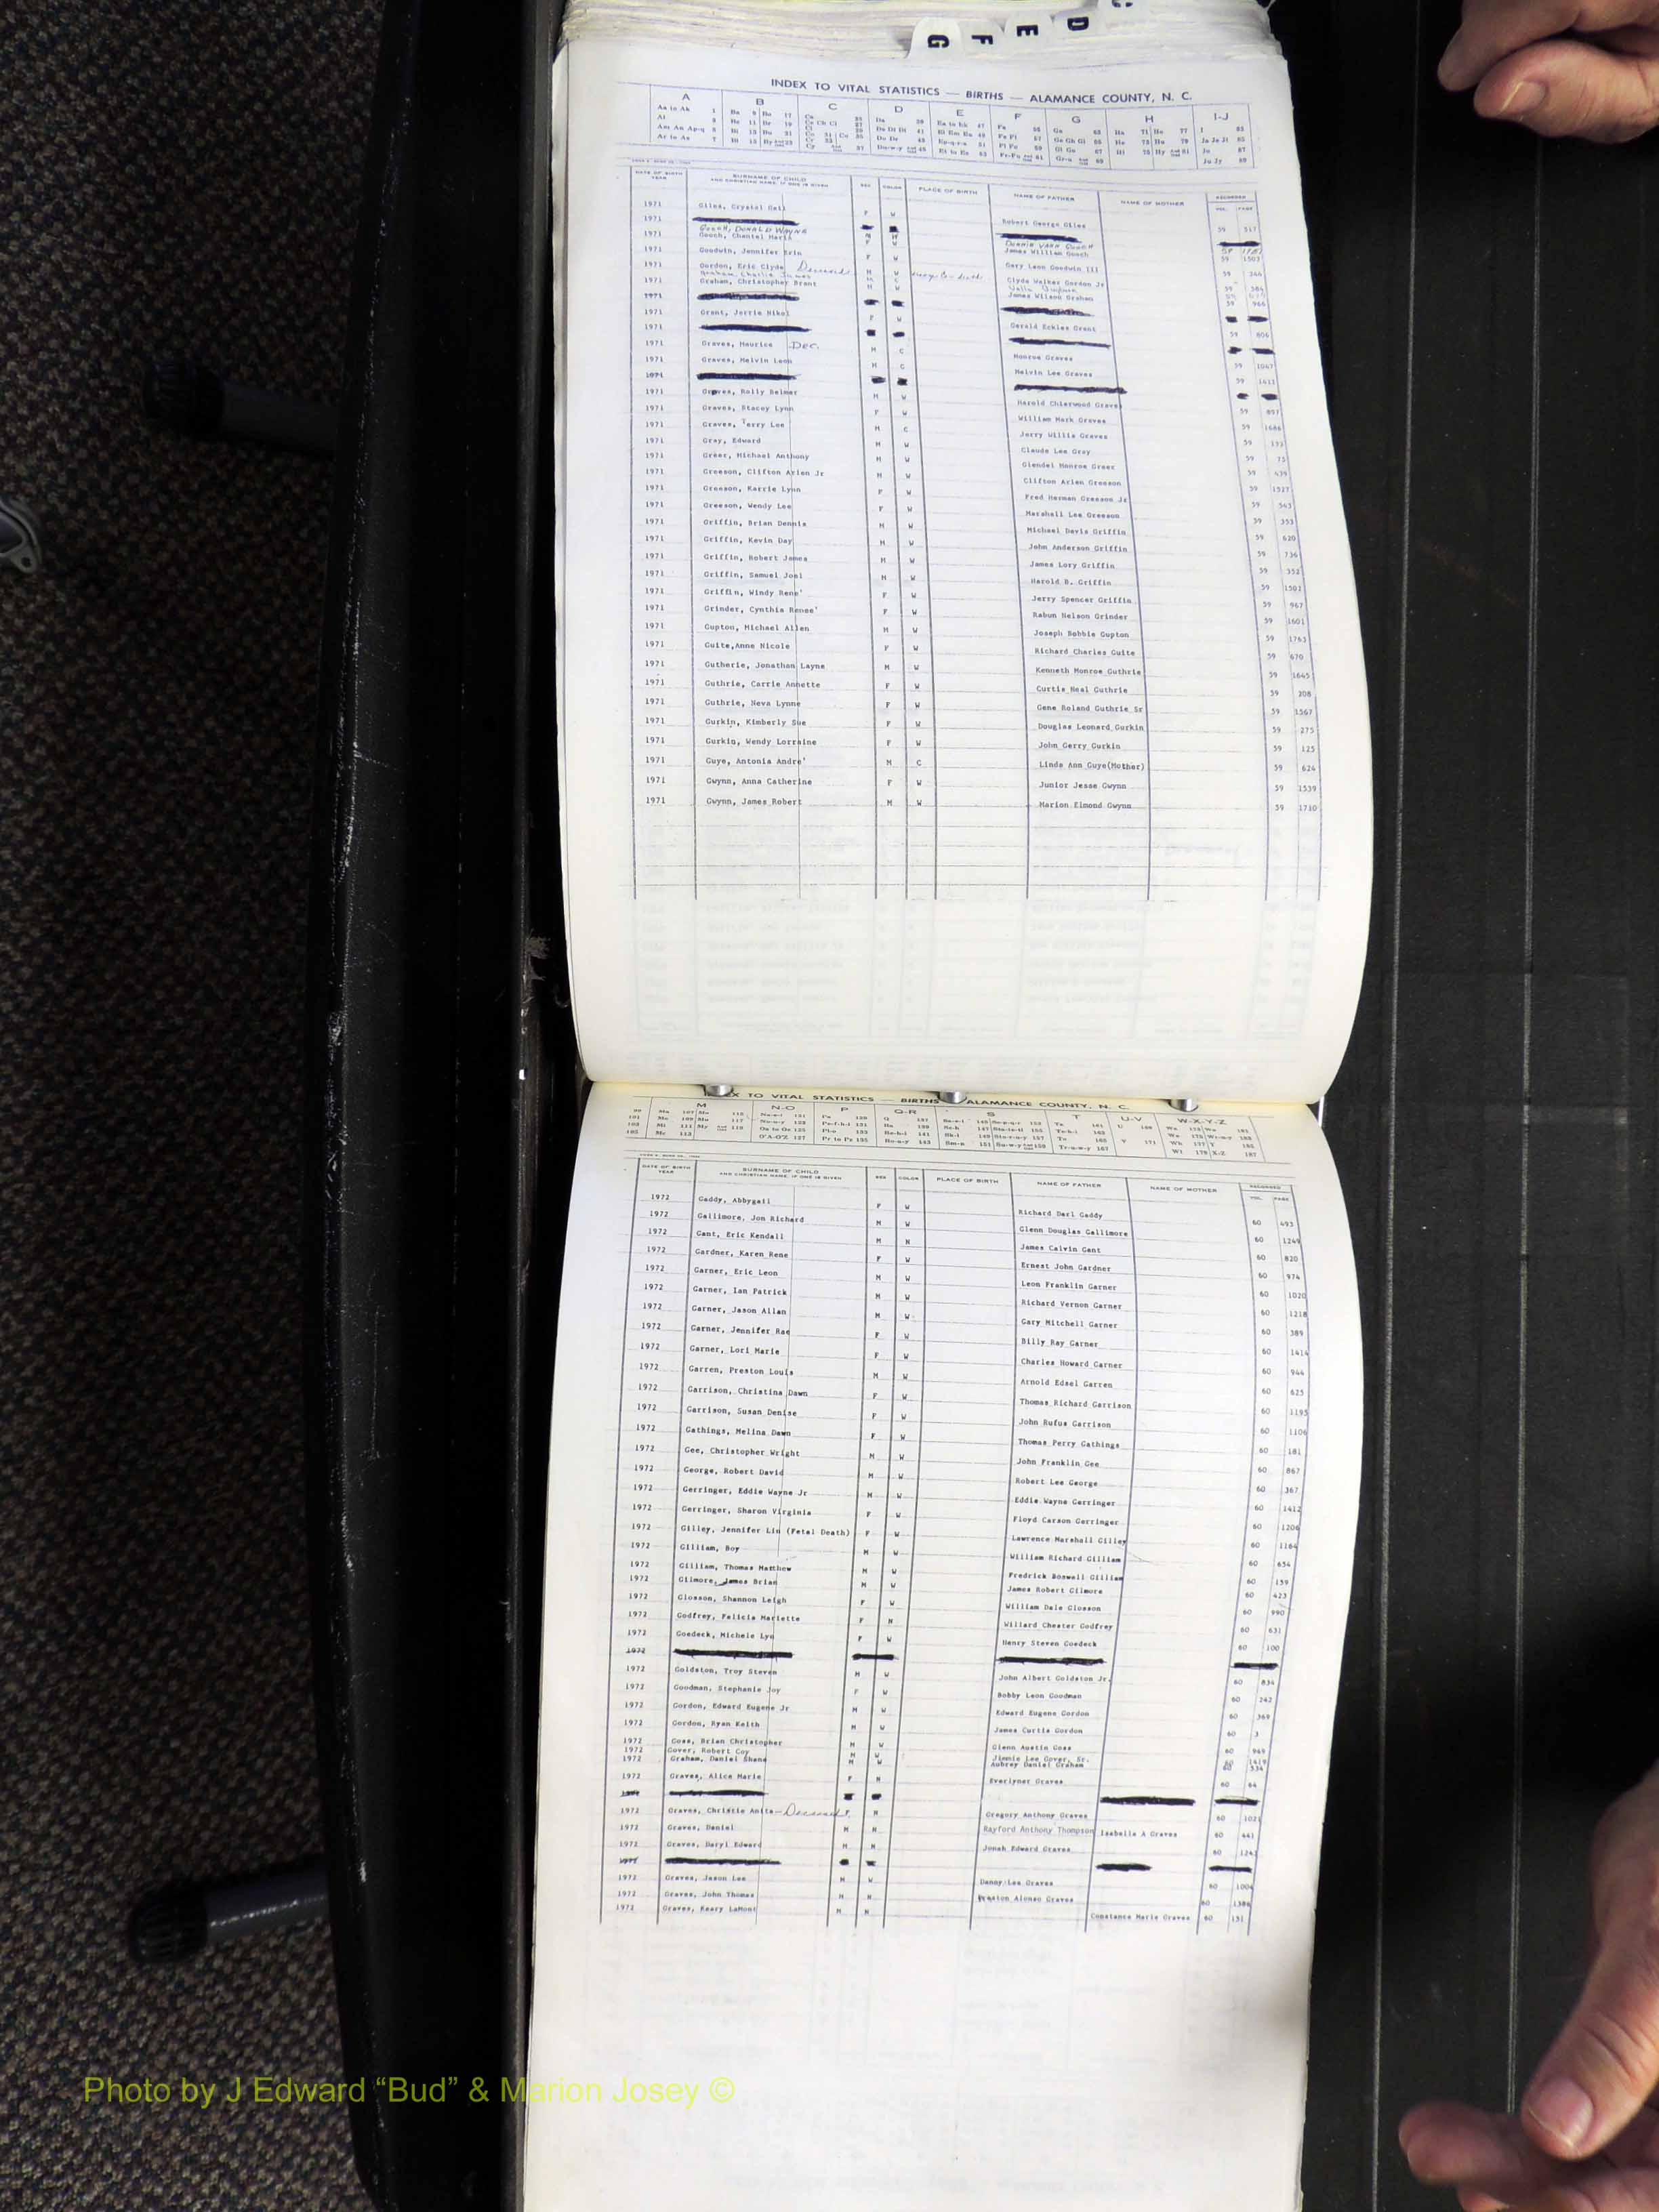 G F E D
INDEX TO VITAL STATISTICS — BIRTHS — ALAMANCE COUNTY, N. C.
A B C D E F G H I-J
DATE OF BIRTH YEAR SURNAME OF CHILD AND CHRISTIAN NAME, IF ONE IS GIVEN SEX COLOR PLACE OF BIRTH NAME OF FATHER NAME OF MOTHER RECORDED VOL. PAGE
1971 Giles, Crystal Gail F W Robert George Giles 59 517
1971
GOOCH, DONALD WAYNE
1971 Gooch, Chantel Maria F W James William Gooch 59 1503
1971 Goodwin, Jennifer Erin F W Gary Leon Goodwin III 59 344
1971 Gordon, Eric Clyde Deceased M W Clyde Walker Gordon Jr 59
Graham, Charlie James
1971 Graham, Christopher Brant M W James Wilson Graham 59 966
1971
1971 Grant, Jerrie Nikol F W Gerald Eckles Grant 59 606
1971
1971 Graves, Maurice Dec. M C Monroe Graves 59 1047
1971 Graves, Melvin Leon M C Melvin Lee Graves 59 1411
1971
1971 Graves, Rolly Belmer M W Harold Chierwood Graves 59 897
1971 Graves, Stacey Lynn F W William Mark Graves 59 1686
1971 Graves, Terry Lee M C Jerry Willie Graves 59 133
1971 Gray, Edward M W Claude Lee Gray 59 75
1971 Greer, Michael Anthony M W Glendel Monroe Greer 59 439
1971 Greeson, Clifton Arlen Jr M W Clifton Arlen Greeson 59 1527
1971 Greeson, Karrie Lynn F W Fred Herman Greeson Jr 59 543
1971 Greeson, Wendy Lee F W Marshall Lee Greeson 59 353
1971 Griffin, Brian Dennis M W Michael Davis Griffin 59 620
1971 Griffin, Kevin Day M W John Anderson Griffin 59 736
1971 Griffin, Robert James M W James Lory Griffin 59 352
1971 Griffin, Samuel Joel M W Harold B. Griffin 59 1501
1971 Griffin, Windy Rene' F W Jerry Spencer Griffin 59 967
1971 Grinder, Cynthia Renee' F W Rabun Nelson Grinder 59 1601
1971 Gupton, Michael Allen M W Joseph Bobbie Gupton 59 1763
1971 Guite,Anne Nicole F W Richard Charles Guite 59 670
1971 Gutherie, Jonathan Layne M W Kenneth Monroe Guthrie 59 1645
1971 Guthrie, Carrie Annette F W Curtis Neal Guthrie 59 208
1971 Guthrie, Neva Lynne F W Gene Roland Guthrie Sr 59 1567
1971 Gurkin, Kimberly Sue F W Douglas Leonard Gurkin 59 275
1971 Gurkin, Wendy Lorraine F W John Gerry Gurkin 59 125
1971 Guye, Antonia Andre' M C Linda Ann Guye(Mother) 59 624
1971 Gwynn, Anna Catherine F W Junior Jesse Gwynn 59 1539
1971 Gwynn, James Robert M W Marion Eimond Gwynn 59 1710
TO VITAL STATISTICS — BIRTHS — ALAMANCE COUNTY, N. C.
M N-O P Q-R S T U-V W-X-Y-Z
DATE OF BIRTH YEAR SURNAME OF CHILD AND CHRISTIAN NAME, IF ONE IS GIVEN SEX COLOR PLACE OF BIRTH NAME OF FATHER NAME OF MOTHER RECORDED VOL. PAGE
1972 Gaddy, Abbygail F W Richard Darl Gaddy 60 493
1972 Gallimore, Jon Richard M W Glenn Douglas Gallimore 60 1249
1972 Gant, Eric Kendall M N James Calvin Gant 60 820
1972 Gardner, Karen Rene F W Ernest John Gardner 60 974
1972 Garner, Eric Leon M W Leon Franklin Garner 60 1020
1972 Garner, Ian Patrick M W Richard Vernon Garner 60 1218
1972 Garner, Jason Allan M W Gary Mitchell Garner 60 389
1972 Garner, Jennifer Rae F W Billy Ray Garner 60 1414
1972 Garner, Lori Marie F W Charles Howard Garner 60 946
1972 Garren, Preston Louis M W Arnold Edsel Garren 60 625
1972 Garrison, Christina Dawn F W Thomas Richard Garrison 60 1195
1972 Garrison, Susan Denise F W John Rufus Garrison 60 1106
1972 Gathings, Melina Dawn F W Thomas Perry Gathings 60 181
1972 Gee, Christopher Wright M W John Franklin Gee 60 867
1972 George, Robert David M W Robert Lee George 60 367
1972 Gerringer, Eddie Wayne Jr M W Eddie Wayne Gerringer 60 1412
1972 Gerringer, Sharon Virginia F W Floyd Carson Gerringer 60 1206
1972 Gilley, Jennifer Lin (Fetal Death) F W Lawrence Marshall Gilley 60 1164
1972 Gilliam, Boy M W William Richard Gilliam 60 654
1972 Gilliam, Thomas Matthew M W Fredrick Boswell Gilliam 60 159
1972 Gilmore, James Brian M W James Robert Gilmore 60 423
1972 Glosson, Shannon Leigh F W William Dale Glosson 60 990
1972 Godfrey, Felicia Mariette F N Willard Chester Godfrey 60 631
1972 Goedeck, Michele Lyn F W Henry Steven Goedeck 60 100
1972
1972 Goldston, Troy Steven M W John Albert Goldston Jr. 60 834
1972 Goodman, Stephanie Joy F W Bobby Leon Goodman 60 242
1972 Gordon, Edward Eugene Jr M W Edward Eugene Gordon 60 369
1972 Gordon, Ryan Keith M W James Curtis Gordon 60 3
1972 Goss, Brian Christopher M W Glenn Austin Goss 60 949
1972 Gover, Robert Coy M W Jimmie Lee Gover, Sr. 60 1419
1972 Graham, Daniel Shane M W Aubrey Daniel Graham 60 534
1972 Graves, Alice Marie F N Everlyner Graves 60 64
1972 Graves, Christie Anita-Deceased F N Gregory Anthony Graves 60 1021
1972 Graves, Daniel M N Rayford Anthony Thompson Isabella A Graves 60 441
1972 Graves, Daryl Edward M N Jonah Edward Graves 60 1241
1972
1972 Graves, Jason Lee M W Danny Lee Graves 60 1004
1972 Graves, John Thomas M N Preston Alonso Graves 60 1386
1972 Graves, Keary LaMont M N Constance Marie Graves 60 151
Photo by J Edward “Bud” & Marion Josey ©